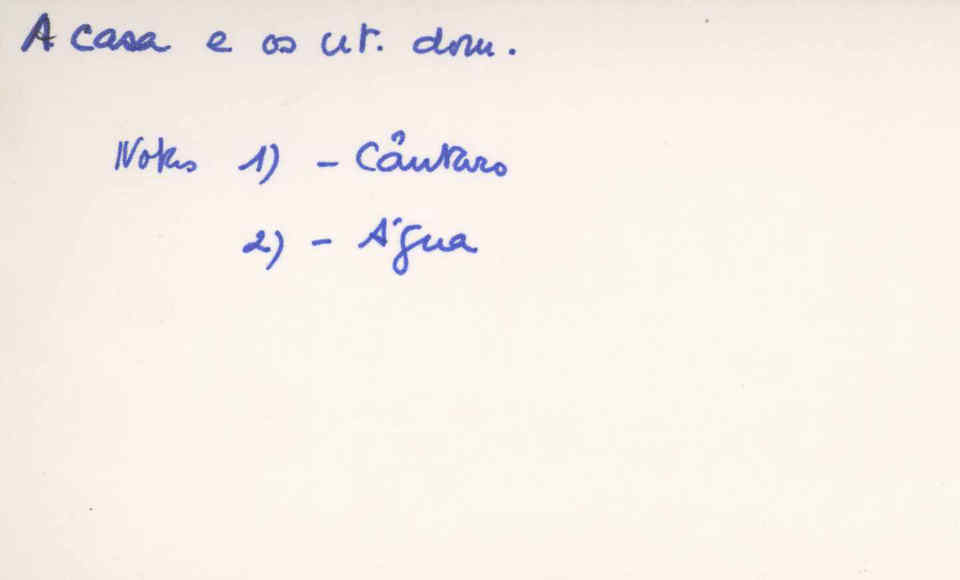 A casa e os ut. dom.
Notas 1) - Cântaro
2) - Água